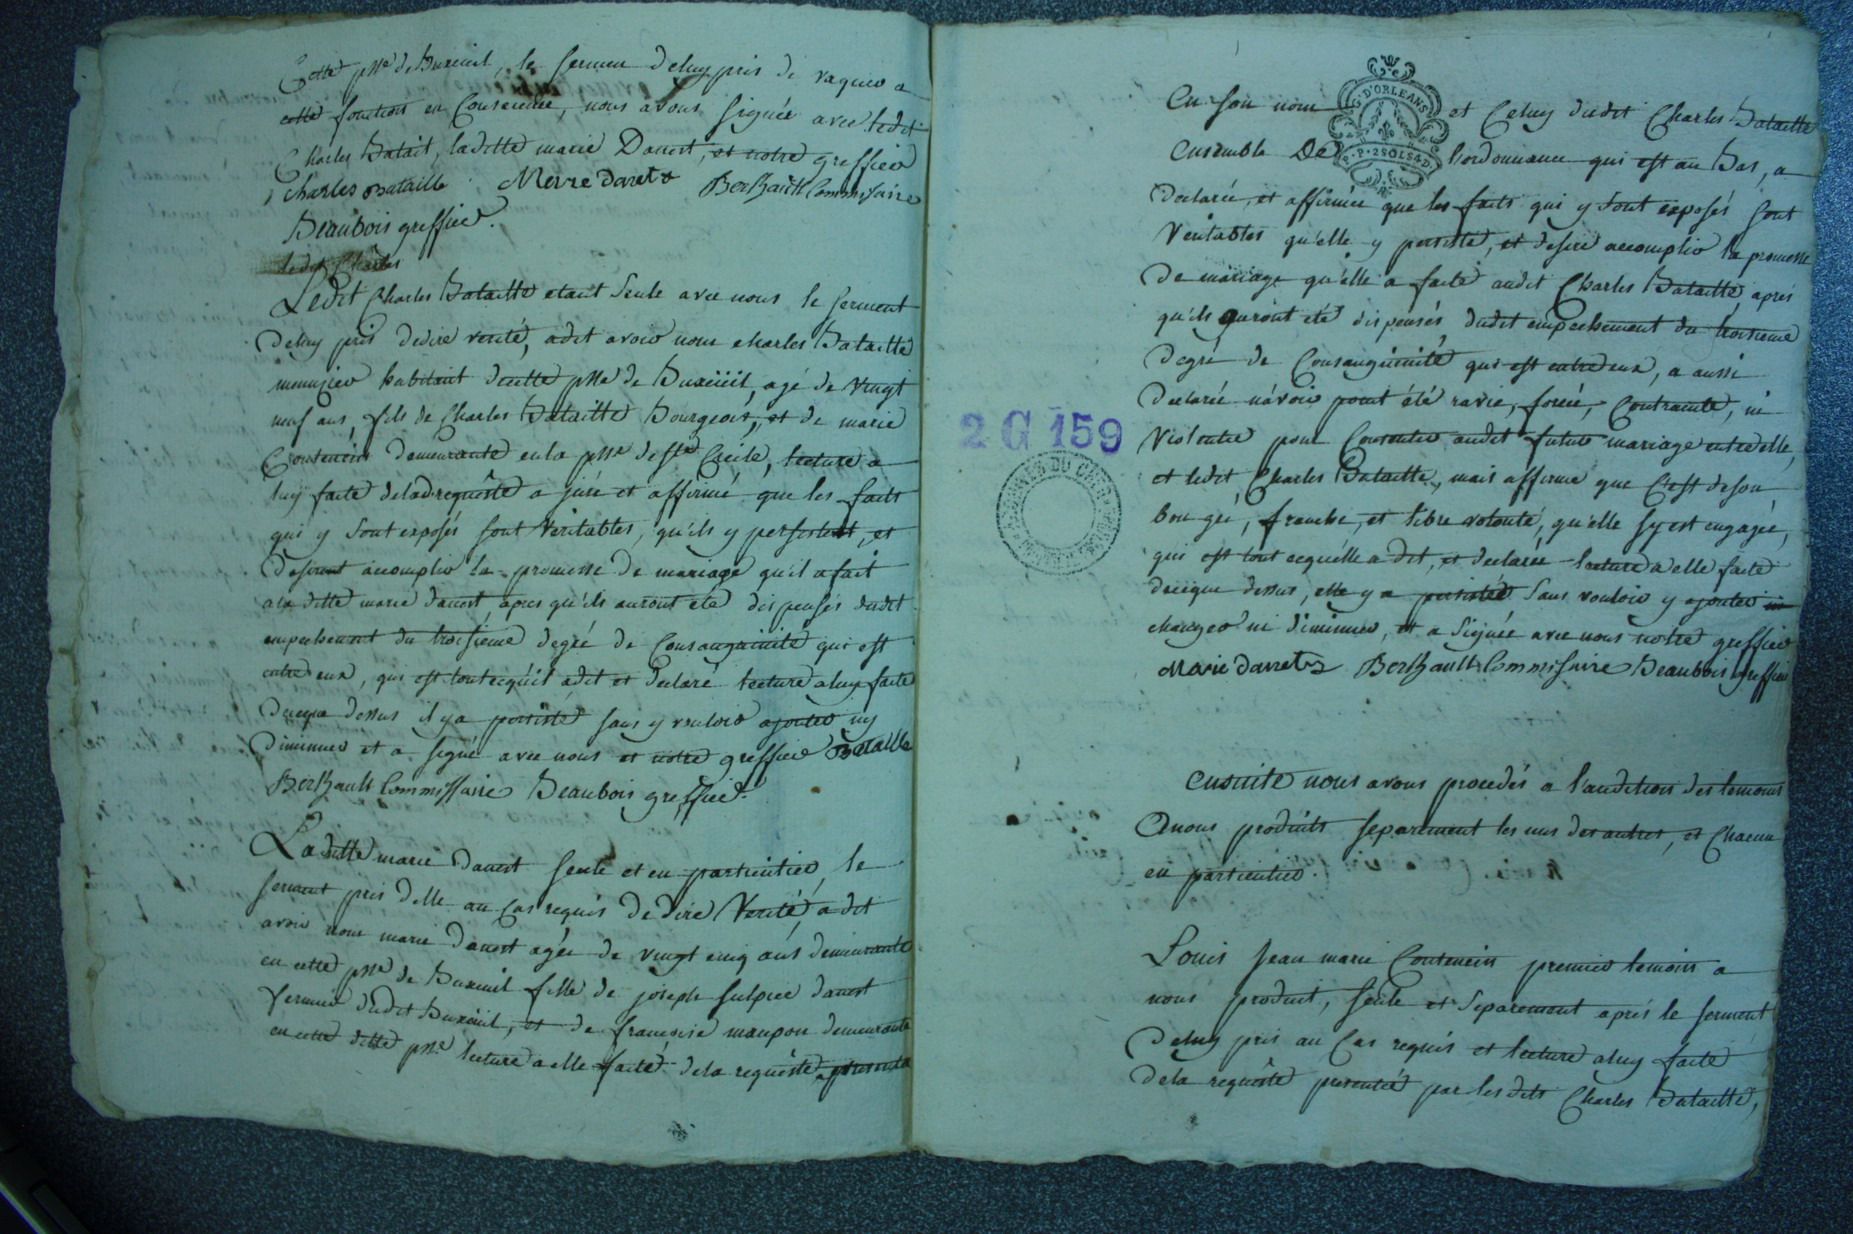 Cette psse de Buxeuil, le serment de luy pris de vaquer a
cette fonction en Conscience, nous avons signée avec ledit
Charles Batail, laditte marie Davest, et notre greffier
Charles Bataille Merie Davets Berthault Commissaire
Beaubois greffier.
ledit Charles
Ledit Charles Bataille etant seule avec nous le serment
de luy pris de dire verité, a dit avoir nom charles Bataille
menuzier habitant de cette psse de Buxeüil, agé de vingt
neuf ans, fils de Charles Bataille Bourgeois, et de marie
Contencin demeurante en la psse de Ste Cecile, lecture a
luy faite de lad. requête a juré et affirmé que les faits
qui y sont exposés sont veritables, qu'ils y persistent, et
desirent accomplir la promesse de mariage qu'il a fait
a la ditte marie davest apres qu'ils auront eté dispensés dudit
empechement du troisieme degré de Consanguinité qui est
entre eux, qui est tout cequ'il a dit et declaré lecture a luy faite
de ceque dessus il y a persisté sans y vouloir ajouter ny
diminuer et a signé avec nous et notre greffier Bataille
Berthault Commissaire Beaubois greffier.
La ditte marie davest seule et en particulier, le
serment pris d'elle au Cas requis de dire Verité, a dit
avoir nom marie davest agée de vingt cinq ans demeurante
en cette psse de Buxeuil fille de joseph sulpice davest
fermier dudit Buxeüil, et de françoise maupou demeurante
en cette ditte psse lecture a elle faite de la requête presentée
en son nom et Celuy dudit Charles Bataille
G. D'ORLEANS
P. P. 2 SOLS 4 D.
Ensemble De l'ordonnance qui est au bas, a
declarée, et affirmée que les faits qui y sont exposés sont
Veritables qu'elle y persiste, et desire accomplir la promesse
de mariage qu'elle a faite audit Charles Bataille, aprés
qu'ils auront eté dispensés dudit empechement du troisieme
degré de Consanguinité qui est entre eux, a aussi
declarée n'avoir point été ravie, forcée, Contrainte, ni
violentée pour Consentir audit futur mariage entre elle,
et ledit Charles Bataille, mais affirme que C'est de son
bon gré, franche, et libre volonté, qu'elle s'y est engagée,
qui est tout cequ'elle a dit, et declarée lecture a elle faite
de ceque dessus, elle y a persistée sans vouloir y ajouter ni
changer ni diminuer, et a signée avec nous notre greffier
Marie Davets Berthault Commissaire Beaubois greffier
2 G 159
ARCHIVES DU CHER
ensuite nous avons procedés a l'audition des temoins
a nous produits separement les uns des autres, et chacun
en particulier.
Louis Jean marie Contencin premier temoin a
nous produit, seule et separement aprés le serment
de luy pris au Cas requis et lecture a luy faite
de la requête presentée par les dits Charles Bataille,